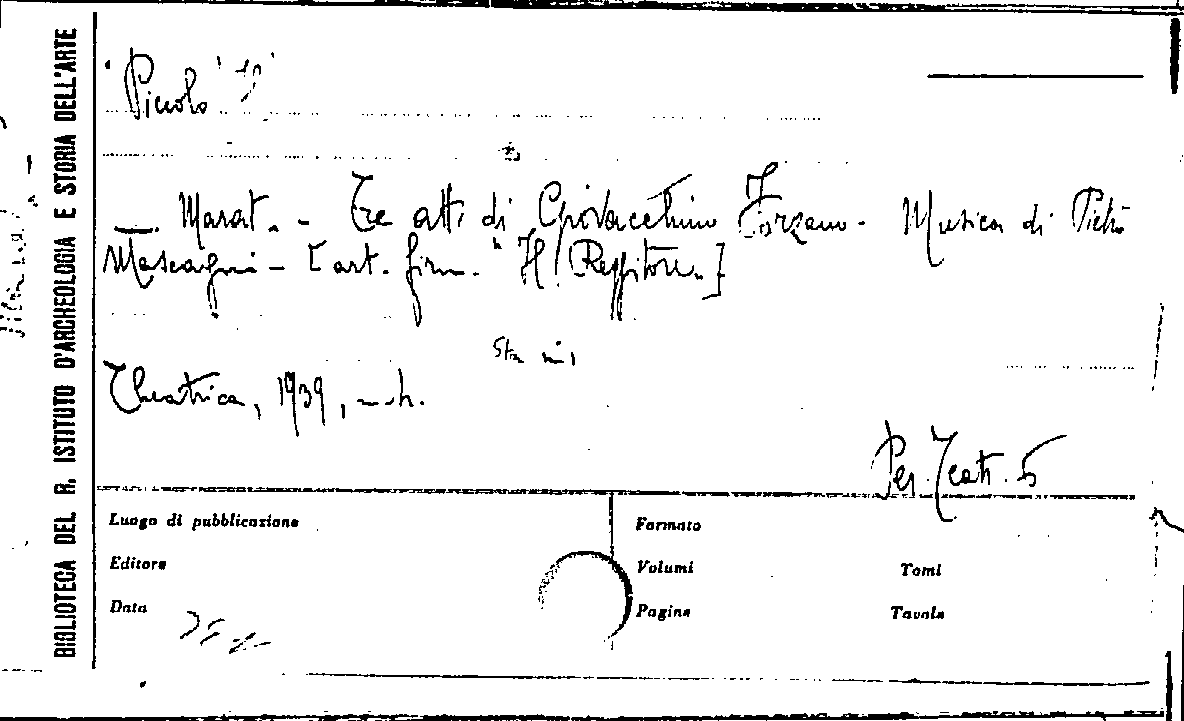 BIBLIOTECA DEL R. ISTITUTO D'ARCHEOLOGIA E STORIA DELL'ARTE
"Piccolo"
Marat. - Tre atti di Giovacchino Forzano - Musica di Pietro
Mascagni - [art. firm. "Il Reggitore"]
Theatrica, 1939, n. h.
Per. Teatr. 5
Luogo di pubblicazione
Formato
Editore
Volumi Tomi
Data
Pagine Tavole